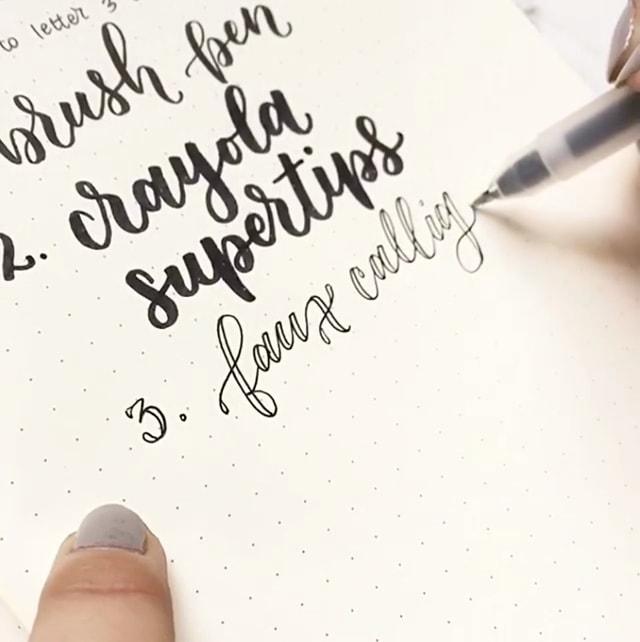 to letter 3
brush pen
2. crayola
supertips
3. faux callig